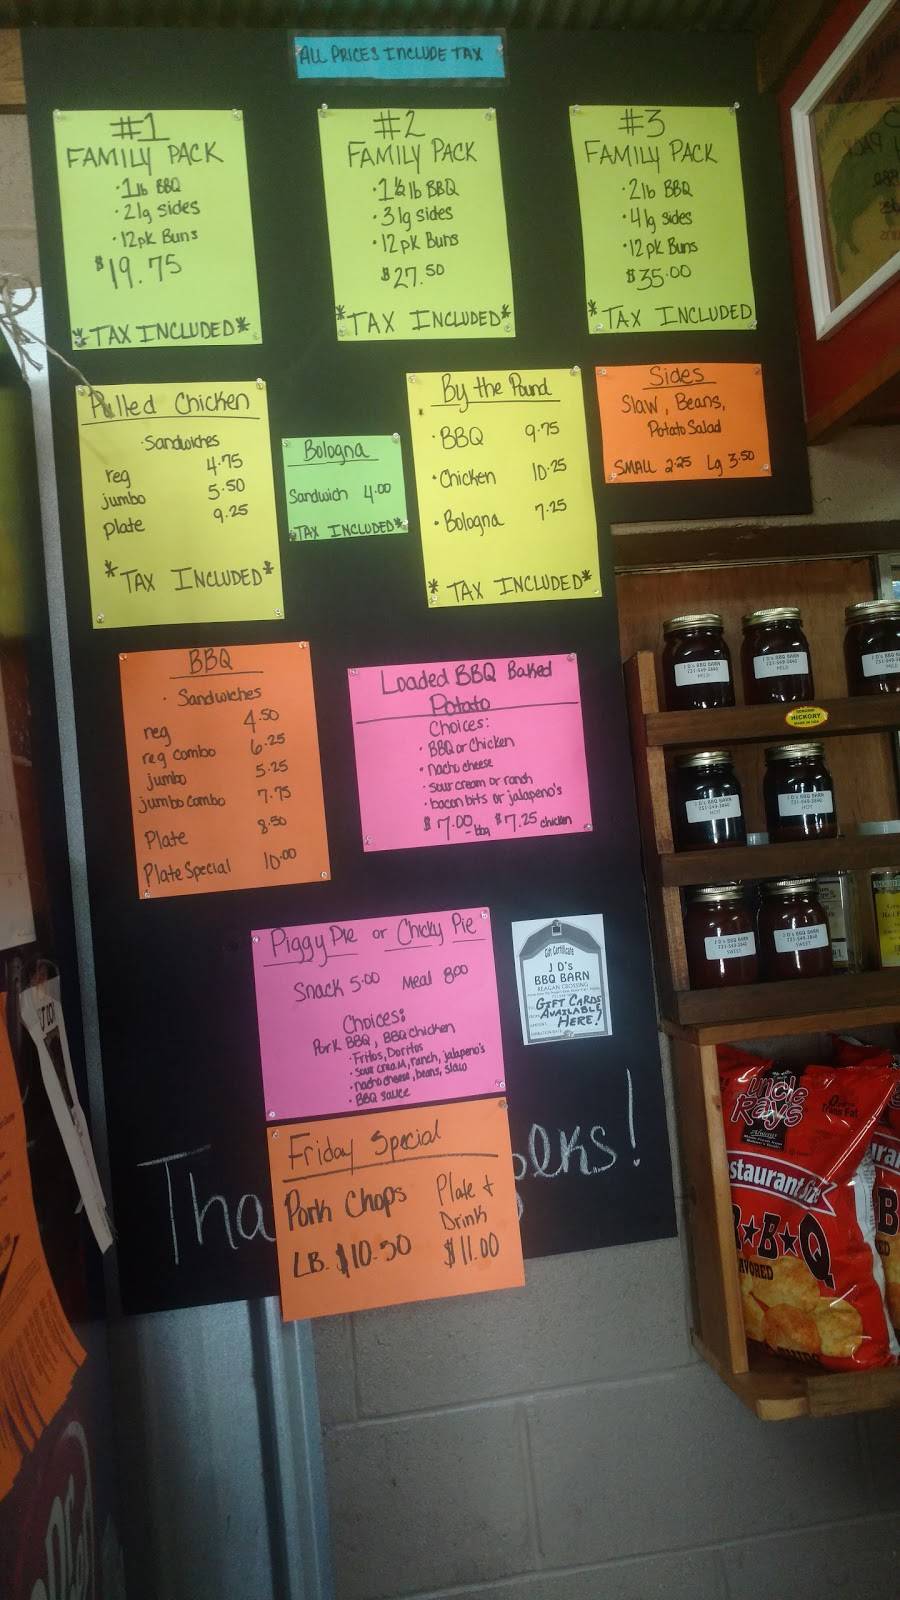 ALL PRICES INCLUDE TAX
#1
FAMILY PACK
· 1lb BBQ
· 2lg sides
· 12pk Buns
$19.75
*TAX INCLUDED*
#2
FAMILY PACK
· 1½ lb BBQ
· 3lg sides
· 12pk Buns
$27.50
*TAX INCLUDED*
#3
FAMILY PACK
· 2lb BBQ
· 4lg sides
· 12pk Buns
$35.00
*TAX INCLUDED
Pulled Chicken
· Sandwiches
reg 4.75
jumbo 5.50
plate 9.25
*TAX INCLUDED*
Bologna
Sandwich 4.00
*TAX INCLUDED*
By the Pound
· BBQ 9.75
· Chicken 10.25
· Bologna 7.25
*TAX INCLUDED*
Sides
Slaw, Beans,
Potato Salad
SMALL 2.25 Lg 3.50
BBQ
· Sandwiches
reg 4.50
reg combo 6.25
jumbo 5.25
jumbo combo 7.75
Plate 8.50
Plate Special 10.00
Loaded BBQ Baked
Potato
Choices:
· BBQ or Chicken
· nacho cheese
· sour cream or ranch
· bacon bits or jalapeno's
$7.00 bbq $7.25 chicken
Piggy Pie or Chicky Pie
Snack 5.00 Meal 8.00
Choices:
Pork BBQ, BBQ chicken
· Fritos, Doritos
· sour cream, ranch, jalapeno's
· nacho cheese, beans, slaw
· BBQ sauce
Gift Certificate
J D's
BBQ BARN
REAGAN CROSSING
GIFT CARDS
AVAILABLE
HERE!
Friday Special
Pork Chops
LB. $10.50
Plate +
Drink
$11.00
Tha olks!
J D'S BBQ BARN
731-549-3840
MILD
J D'S BBQ BARN
731-549-3840
MILD
HICKORY
J D'S BBQ BARN
731-549-3840
HOT
J D'S BBQ BARN
731-549-3840
HOT
J D'S BBQ BARN
731-549-3840
SWEET
J D'S BBQ BARN
731-549-3840
SWEET
Uncle
Ray's
Trans Fat
staurant Siz
B★B★Q
AVORED